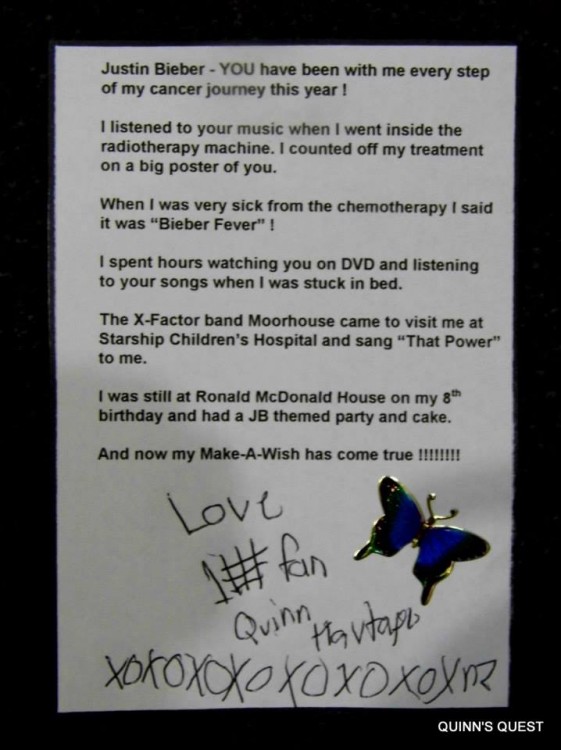 Justin Bieber - YOU have been with me every step
of my cancer journey this year !
I listened to your music when I went inside the
radiotherapy machine. I counted off my treatment
on a big poster of you.
When I was very sick from the chemotherapy I said
it was “Bieber Fever” !
I spent hours watching you on DVD and listening
to your songs when I was stuck in bed.
The X-Factor band Moorhouse came to visit me at
Starship Children’s Hospital and sang “That Power”
to me.
I was still at Ronald McDonald House on my 8th
birthday and had a JB themed party and cake.
And now my Make-A-Wish has come true !!!!!!!!
Love
1# fan
Quinn
QUINN'S QUEST